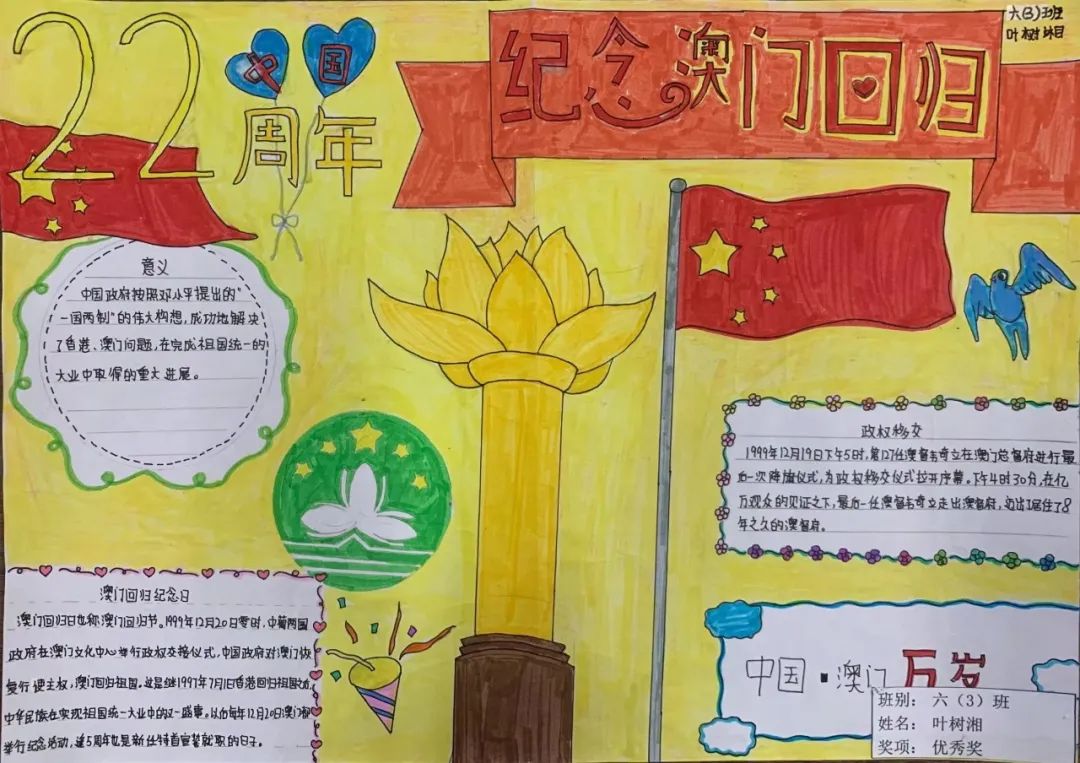 22
周年
中国
纪念澳门回归
六(3)班
叶树湘
意义
中国政府按照邓小平提出的“
一国两制”的伟大构想，成功地解决
了香港、澳门问题，在完成祖国统一的
大业中取得的重大进展。
政权移交
1999年12月19日下午5时，第127任澳督韦奇立在澳门总督府进行最
后一次降旗仪式，为政权移交仪式拉开序幕。下午4时30分，在亿
万观众的见证之下，最后一任澳督韦奇立走出澳督府，迈出了居住了8
年之久的澳督府。
澳门回归纪念日
澳门回归日也称澳门回归节。1999年12月20日零时，中葡两国
政府在澳门文化中心举行政权交接仪式，中国政府对澳门恢
复行使主权，澳门回归祖国。这是继1997年7月1日香港回归祖国之后，
中华民族在实现祖国统一大业中的又一盛事。以后每年12月20日澳门都
举行纪念活动，逢5周年也是新任特首宣誓就职的日子。
中国·澳门万岁
班别：六（3）班
姓名：叶树湘
奖项：优秀奖